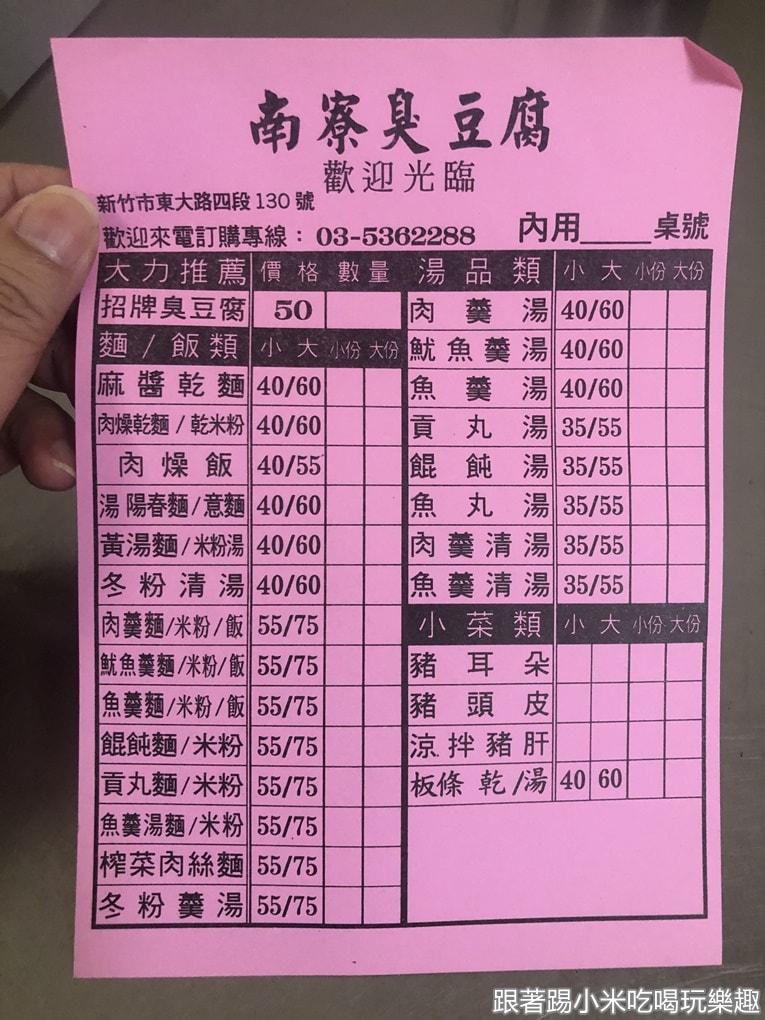 南寮臭豆腐
歡迎光臨
新竹市東大路四段130號
歡迎來電訂購專線：03-5362288
內用____桌號
大力推薦 價格 數量
招牌臭豆腐 50
麵/飯類 小 大 小份 大份
麻醬乾麵 40/60
肉燥乾麵/乾米粉 40/60
肉燥飯 40/55
湯 陽春麵/意麵 40/60
黃湯麵/米粉湯 40/60
冬粉清湯 40/60
肉羹麵/米粉/飯 55/75
魷魚羹麵/米粉/飯 55/75
魚羹麵/米粉/飯 55/75
餛飩麵/米粉 55/75
貢丸麵/米粉 55/75
魚羹湯麵/米粉 55/75
榨菜肉絲麵 55/75
冬粉羹湯 55/75
湯品類 小 大 小份 大份
肉羹湯 40/60
魷魚羹湯 40/60
魚羹湯 40/60
貢丸湯 35/55
餛飩湯 35/55
魚丸湯 35/55
肉羹清湯 35/55
魚羹清湯 35/55
小菜類 小 大 小份 大份
豬耳朵
豬頭皮
涼拌豬肝
板條 乾/湯 40 60
跟著踢小米吃喝玩樂趣